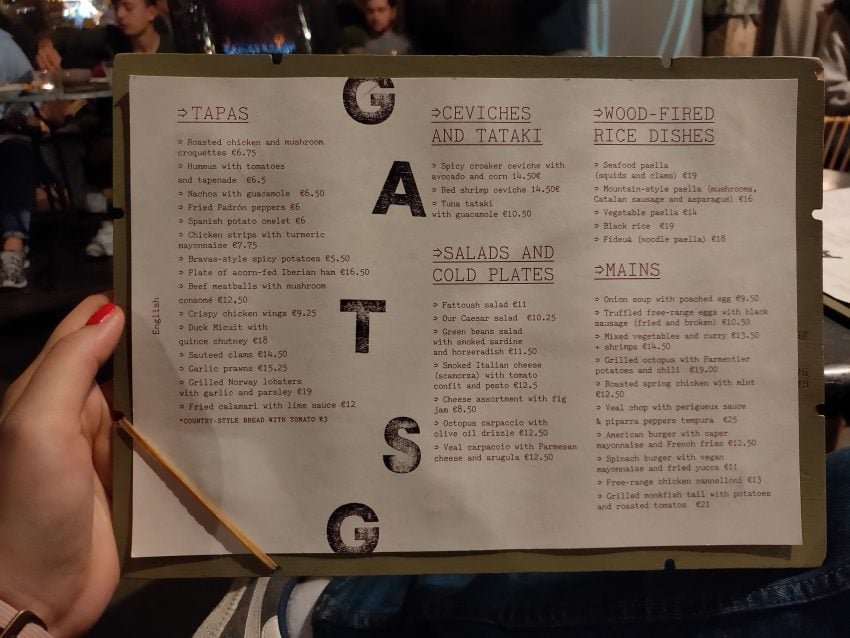 English
⇒TAPAS
➲ Roasted chicken and mushroom
croquettes €6.75
➲ Hummus with tomatoes
and tapenade €6.5
➲ Nachos with guacamole €6.50
➲ Fried Padrón peppers €6
➲ Spanish potato omelet €6
➲ Chicken strips with turmeric
mayonnaise €7.75
➲ Bravas-style spicy potatoes €5.50
➲ Plate of acorn-fed Iberian ham €16.50
➲ Beef meatballs with mushroom
consomé €12,50
➲ Crispy chicken wings €9.25
➲ Duck Micuit with
quince chutney €18
➲ Sauteed clams €14.50
➲ Garlic prawns €15.25
➲ Grilled Norway lobsters
with garlic and parsley €19
➲ Fried calamari with lime sauce €12
*COUNTRY-STYLE BREAD WITH TOMATO €3
G
A
T
S
G
⇒CEVICHES
AND TATAKI
➲ Spicy croaker ceviche with
avocado and corn 14.50€
➲ Red shrimp ceviche 14.50€
➲ Tuna tataki
with guacamole €10.50
⇒SALADS AND
COLD PLATES
➲ Fattoush salad €11
➲ Our Caesar salad €10.25
➲ Green beans salad
with smoked sardine
and horseradish €11.50
➲ Smoked Italian cheese
(scamorza) with tomato
confit and pesto €12.5
➲ Cheese assortment with fig
jam €8.50
➲ Octopus carpaccio with
olive oil drizzle €12.50
➲ Veal carpaccio with Parmesan
cheese and arugula €12.50
⇒WOOD-FIRED
RICE DISHES
➲ Seafood paella
(squids and clams) €19
➲ Mountain-style paella (mushrooms,
Catalan sausage and asparagus) €16
➲ Vegetable paella €14
➲ Black rice €19
➲ Fideuá (noodle paella) €18
⇒MAINS
➲ Onion soup with poached egg €9.50
➲ Truffled free-range eggs with black
sausage (fried and broken) €10.50
➲ Mixed vegetables and curry €13.50
+ shrimps €14.50
➲ Grilled octopus with Parmentier
potatoes and chili €19.00
➲ Roasted spring chicken with mint
€12.50
➲ Veal chop with perigueux sauce
& piparra peppers tempura €25
➲ American burger with caper
mayonnaise and French fries €12.50
➲ Spinach burger with vegan
mayonnaise and fried yucca €11
➲ Free-range chicken cannelloni €13
➲ Grilled monkfish tail with potatoes
and roasted tomatos €21